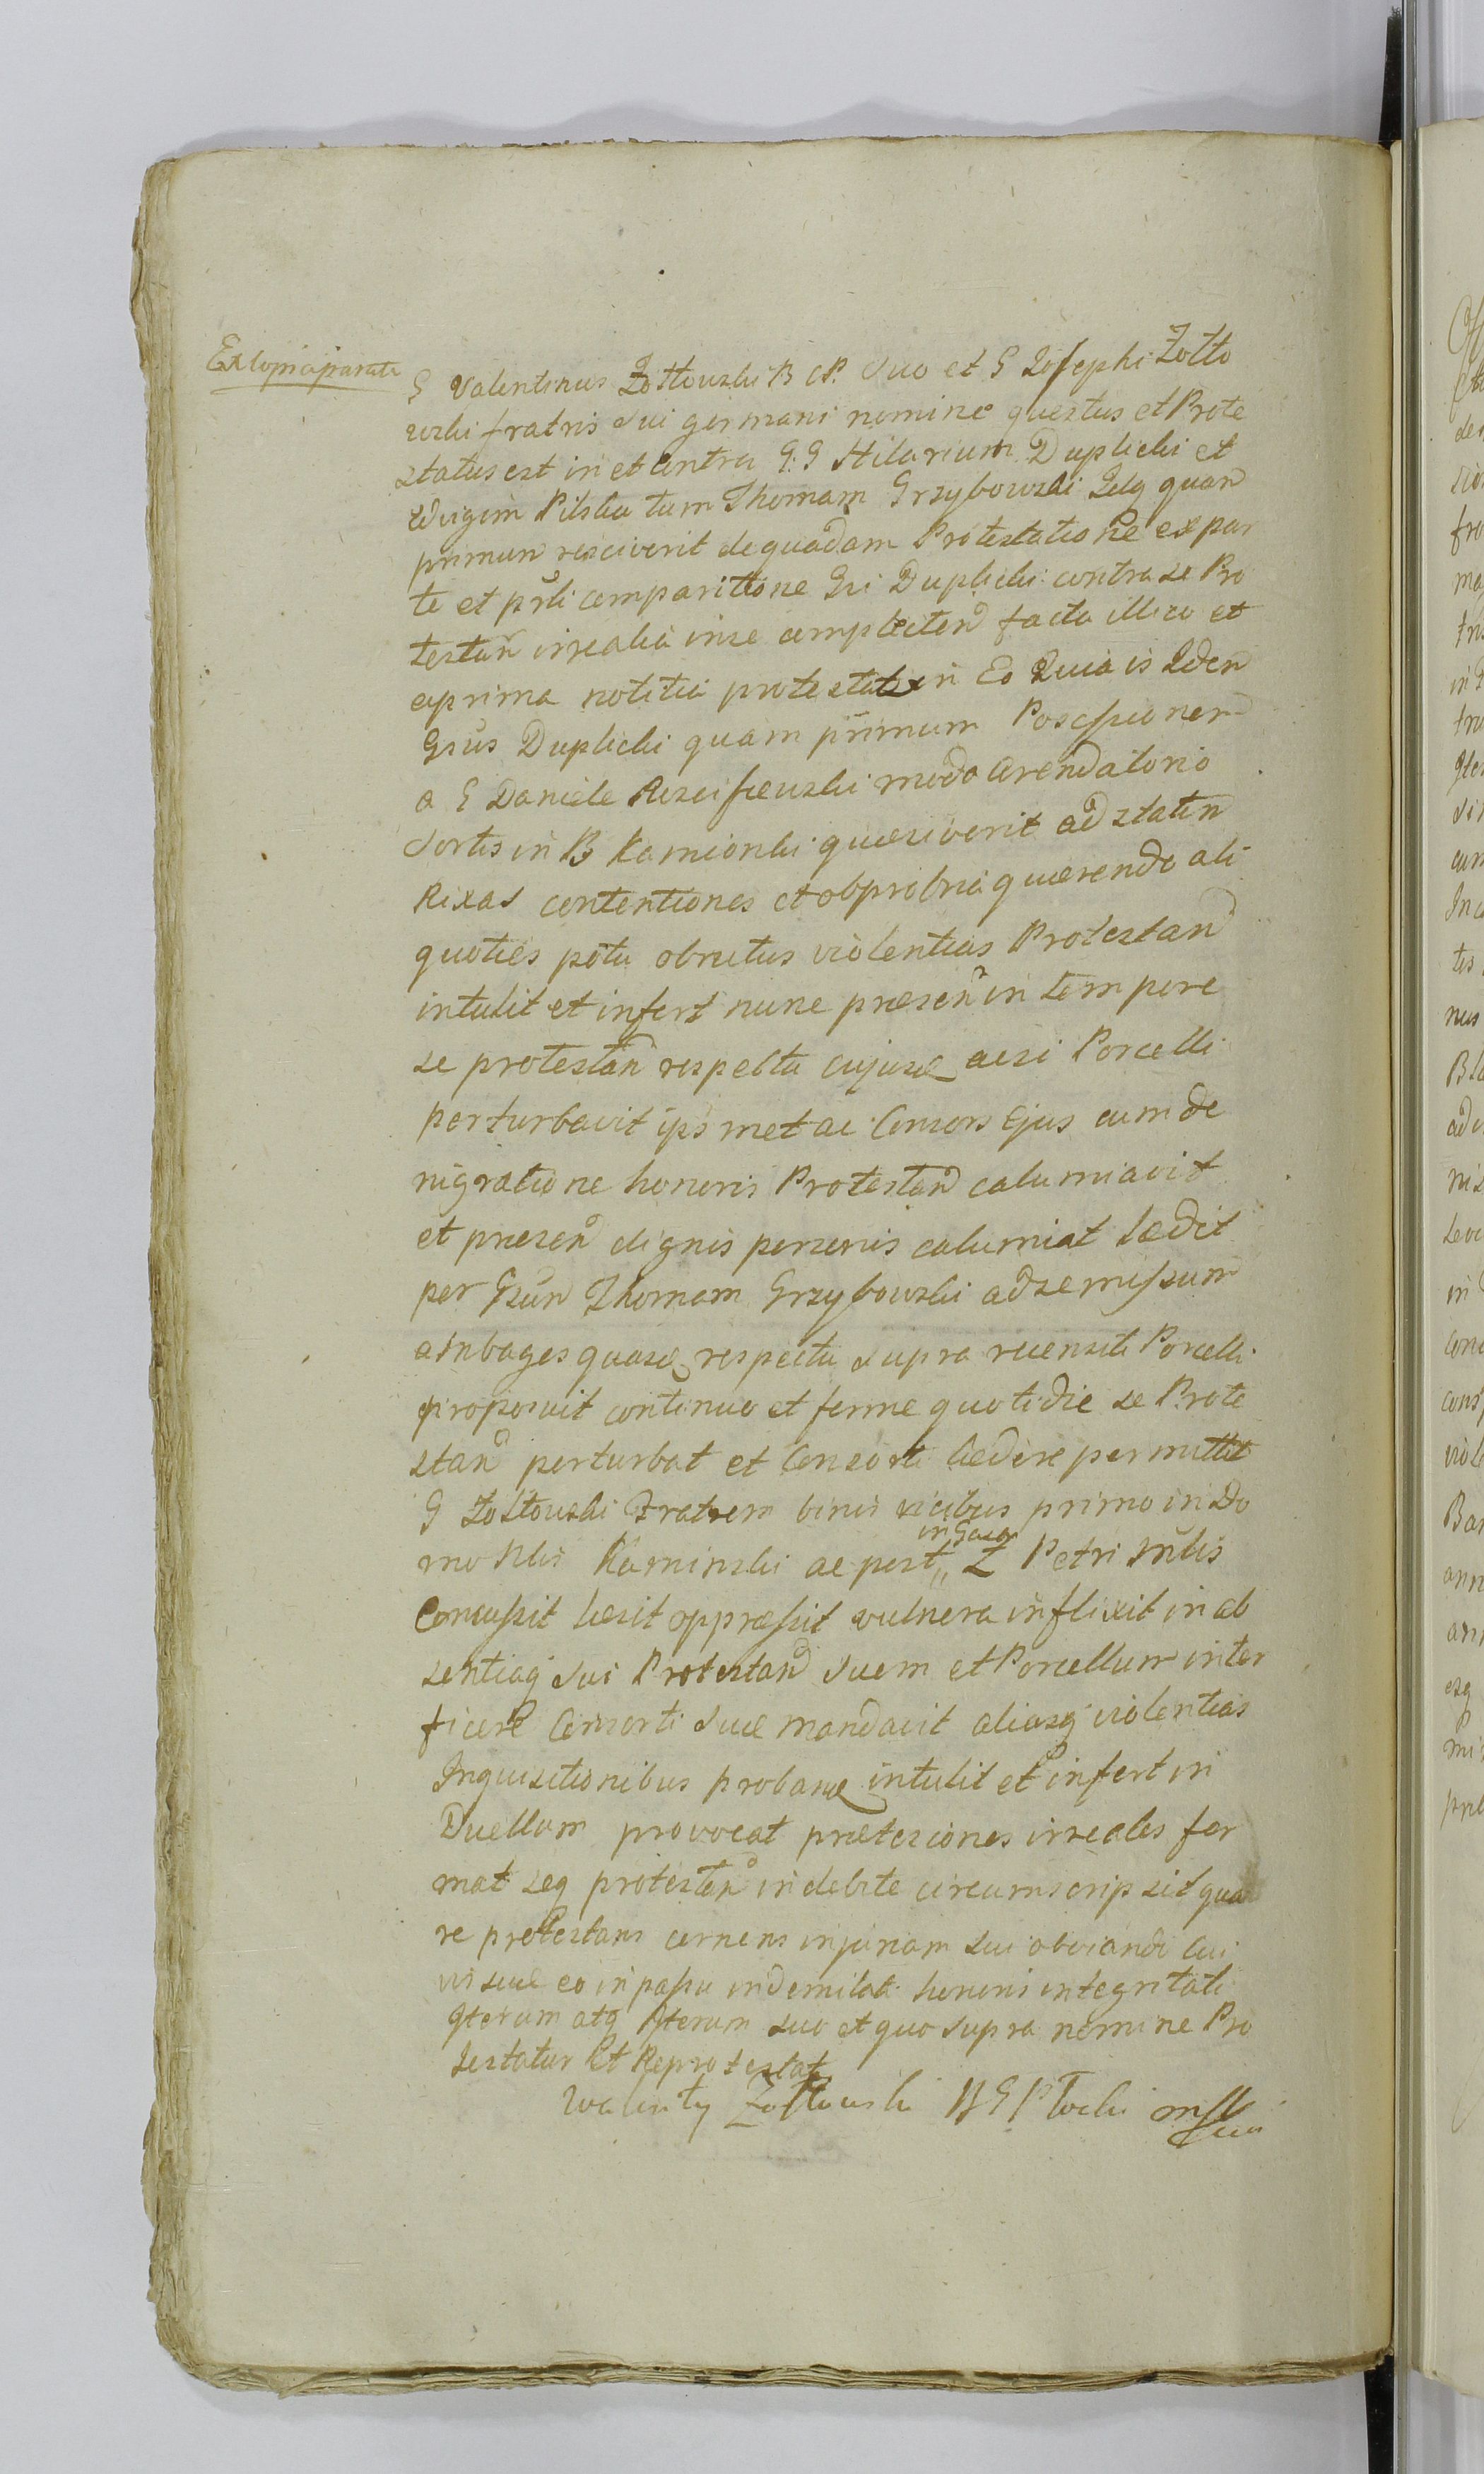 Ex copia parata
G Valentinus Zołtowski B CP. Suo et G Josephi Zołto
wski fratris sui germani nomine questus et Prote
status est in et contra G:G Hilarium Duplicki et
Edvigem Pilska tum Thomam Grzybowski Idq quan
primum resciverit de quadam Protestatione ex par
te et prsli comparitione Gsi Duplicki contra se Pro
testan irrealia in se complecten facta illico et
a prima notitia protestatur in Eo Quia is Iden
Gsus Duplicki quam primum Possessionem
a G Daniele modo Arendatorio
Sortis in B Kamionki quaesiverit ad statin
Rixas contentiones et obprobria quaerendo ali
quoties potu obrutus violentias Protestan
intulit et infert nunc praesen in tempore
se protestan respectu cujusd aesi Porcelli
perturbavit ipsmet ac Consors Ejus cum de
nigratione honoris Protestan calumiavit
et praesen dignis personis calumiat laedit
per Gsun Thomam Grzybowski ad se missum
ambages quasd respectu supra recensiti Porcelli
proposuit continuo et ferme quotidie se Prote
stan perturbat et Consorti laedere permittit
G Zołtowski Fratrem binis vicibus primo in Do
mo Nlis Kaminski ac post in Z Petri Nlis
Concussit laesit oppraessit vulnera inflixit in ab
sentiaq sui Protestan Suem et Porcellum inter
ficere Consorti suae mandavit aliasq violentias
Inquisitionibus proband intulit et infert in
Duellum provocat praetesiones irreales for
mat seq protestan indebite circumscripsit qua
re protestans cernens injuriam sui obviando cui
vis suae eo in passu indemitati honoris integritati
Iterum atq Iterum suo et quo supra nomine Pro
testatur Et Reprotestatr
Walenty Zołtowski B G Płocki mp